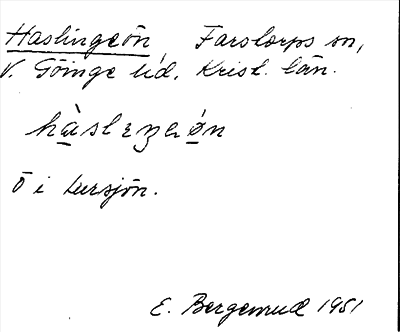 Haslingeön, Farstorps sn,
V. Göinge hd. Krist. län.
hàslɩŋaön
Ö i Lursjön.
E. Bergenrud 1951